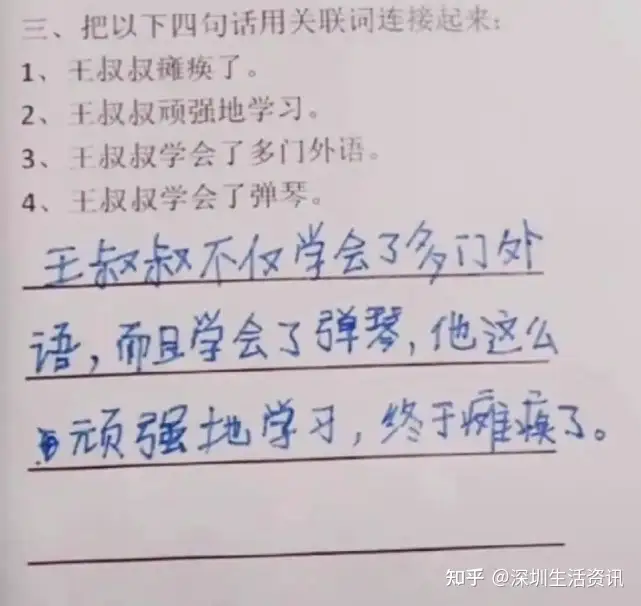 三、把以下四句话用关联词连接起来:
1、王叔叔瘫痪了。
2、王叔叔顽强地学习。
3、王叔叔学会了多门外语。
4、王叔叔学会了弹琴。
王叔叔不仅学会了多门外
语,而且学会了弹琴,他这么
顽强地学习,终于瘫痪了。
知乎 @深圳生活资讯